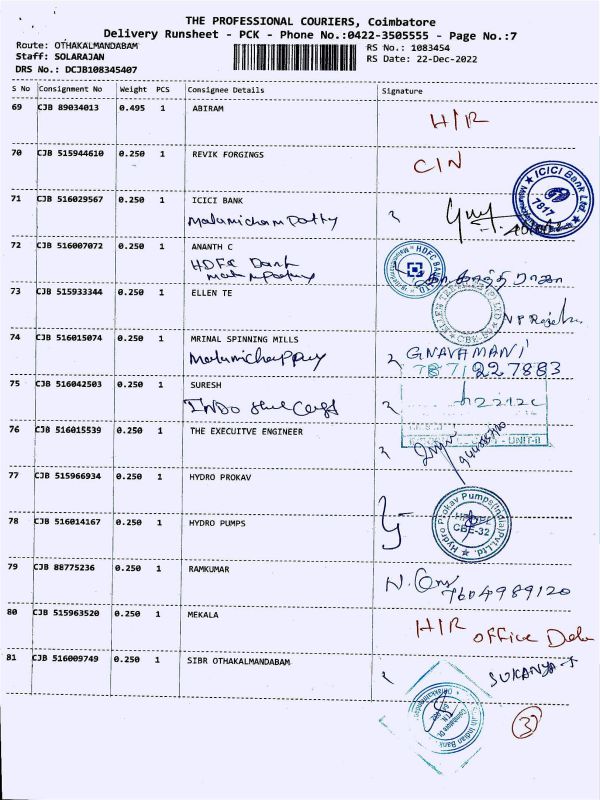 THE PROFESSIONAL COURIERS, Coimbatore
Delivery Runsheet - PCK - Phone No.:0422-3505555 - Page No.:7
Route: OTHAKALMANDABAM RS No.: 1083454
Staff: SOLARAJAN RS Date: 22-Dec-2022
DRS No.: DCJB108345407
S No Consignment No Weight PCS Consignee Details Signature
69 CJB 89034013 0.495 1 ABIRAM H/R
70 CJB 515944610 0.250 1 REVIK FORGINGS CIN
71 CJB 516029567 0.250 1 ICICI BANK
ICICI Bank Ltd.
7817
72 CJB 516007072 0.250 1 ANANTH C
HDFC Bank
HDFC BANK LTD
73 CJB 515933344 0.250 1 ELLEN TE
74 CJB 516015074 0.250 1 MRINAL SPINNING MILLS GNAVAMANI
7871227883
75 CJB 516042503 0.250 1 SURESH
INDO
UNIT-II
76 CJB 516015539 0.250 1 THE EXECUITVE ENGINEER
77 CJB 515966934 0.250 1 HYDRO PROKAV
Hydro Prokav Pumps(India)Pvt.Ltd.
CBE-32
78 CJB 516014167 0.250 1 HYDRO PUMPS
79 CJB 88775236 0.250 1 RAMKUMAR
7604989120
80 CJB 515963520 0.250 1 MEKALA H/R office
81 CJB 516009749 0.250 1 SIBR OTHAKALMANDABAM SUKANYA
Indian Bank
3